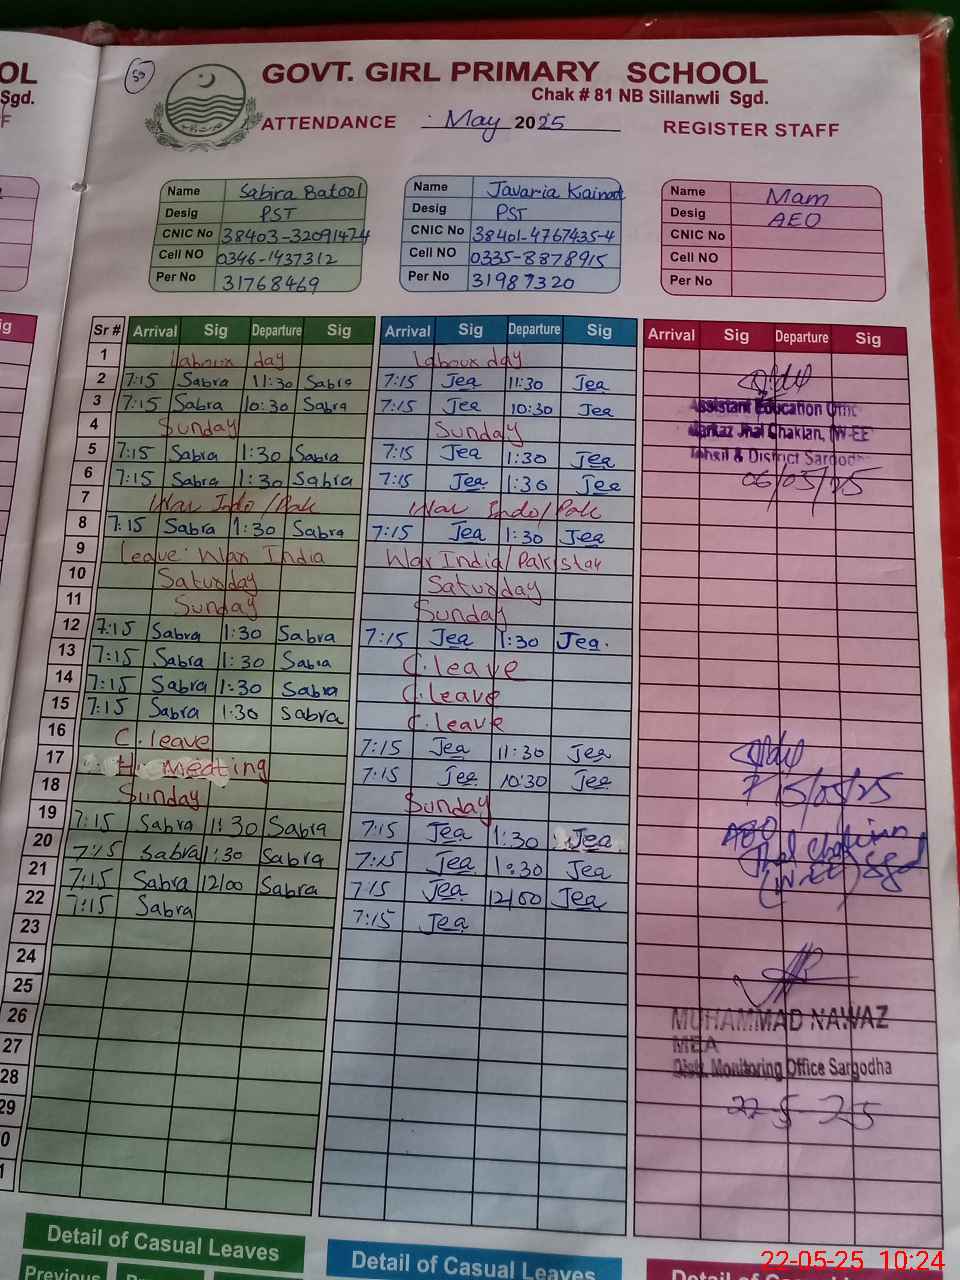 GOVT. GIRL PRIMARY SCHOOL
Chak # 81 NB Sillanwli Sgd.
ATTENDANCE May 2025 REGISTER STAFF
OL
Sgd.
50
Name Sabira Batool
Desig PST
CNIC No 38403-32091474
Cell NO 0346-1437312
Per No 31768469
Name Javaria Kainat
Desig PST
CNIC No 38401-4767435-4
Cell NO 0335-8878915
Per No 31987320
Name Mam
Desig AEO
CNIC No
Cell NO
Per No
Sr # Arrival Sig Departure Sig Arrival Sig Departure Sig Arrival Sig Departure Sig
1 Labour day Labour day
2 7:15 Sabra 11:30 Sabra 7:15 Jea 11:30 Jea
3 7:15 Sabra 10:30 Sabra 7:15 Jea 10:30 Jea
4 Sunday Sunday
5 7:15 Sabra 1:30 Sabra 7:15 Jea 1:30 Jea
6 7:15 Sabra 1:30 Sabra 7:15 Jea 1:30 Jea
7 War Indo/Pak War Indo/Pak
8 7:15 Sabra 1:30 Sabra 7:15 Jea 1:30 Jea
9 Leave War India War India/Pakistan
10 Saturday Saturday
11 Sunday Sunday
12 7:15 Sabra 1:30 Sabra 7:15 Jea 1:30 Jea.
13 7:15 Sabra 1:30 Sabra C.leave
14 7:15 Sabra 1:30 Sabra C.leave
15 7:15 Sabra 1:30 Sabra C.leave
16 C.leave 7:15 Jea 11:30 Jea
17 meeting 7:15 Jea 10:30 Jea
18 Sunday Sunday
19 7:15 Sabra 1:30 Sabra 7:15 Jea 1:30 Jea
20 7:15 Sabra 1:30 Sabra 7:15 Jea 1:30 Jea
21 7:15 Sabra 12/00 Sabra 7:15 Jea 12/00 Jea
22 7:15 Sabra 7:15 Jea
23
24
25
26
27
28
29
0
1
Assistant Education
Markaz Jhal Chakian, (W-EE)
Tehsil & District Sargodha
06/05/25
15/05/25
AEO
Jhal Chakian
(W-EE) Sgd
MUHAMMAD NAWAZ
MEA
Distt. Monitoring Office Sargodha
22-5-25
Detail of Casual Leaves
Detail of Casual Leaves
Previous
22-05-25 10:24